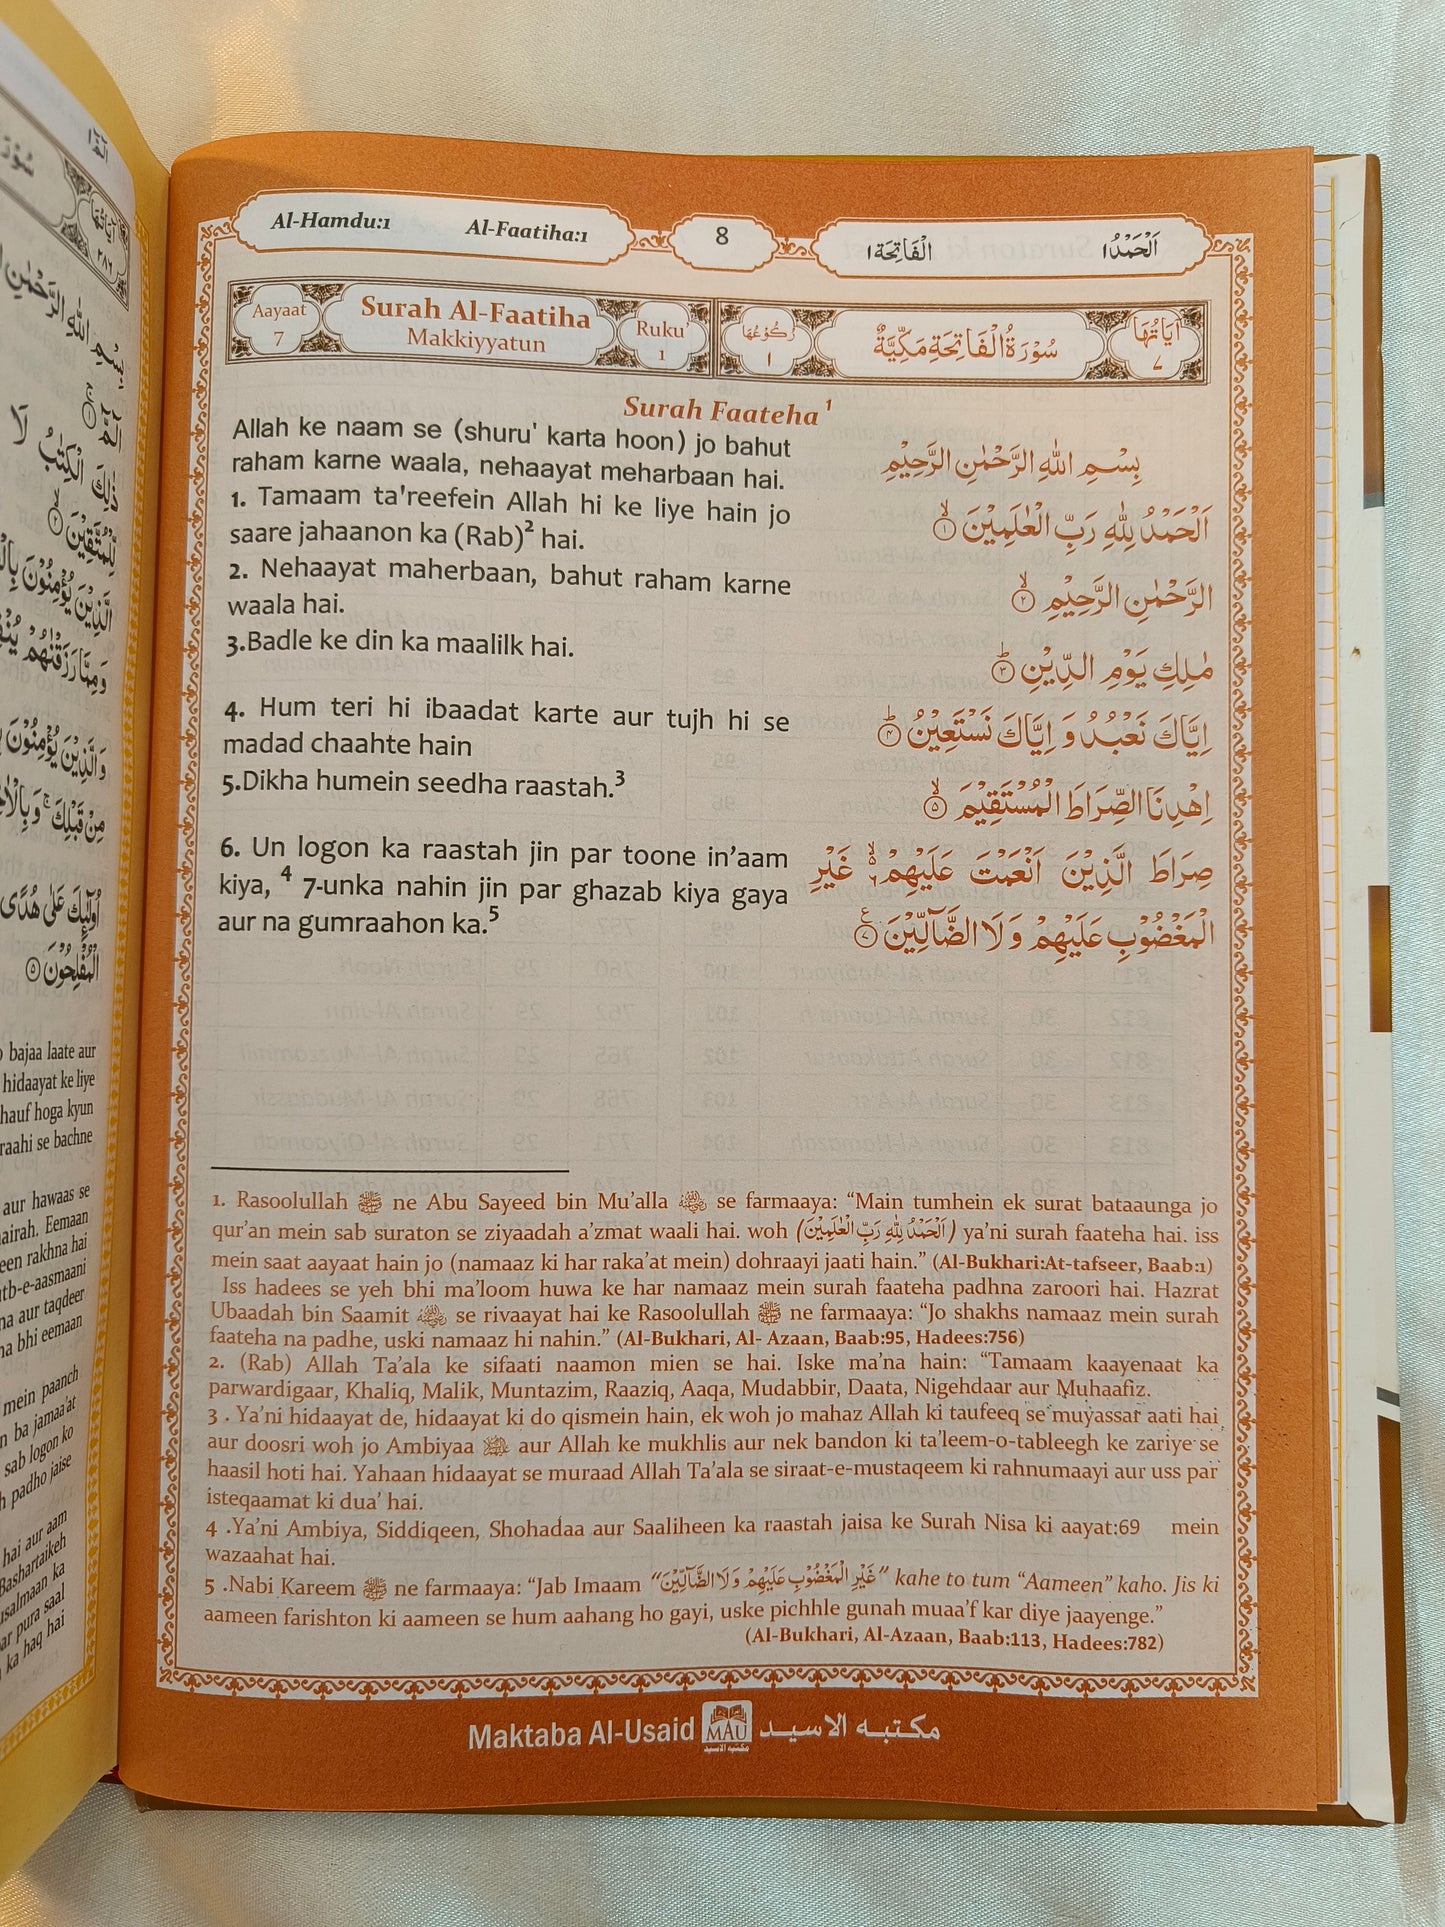 Al-Hamdu:1 Al-Faatiha:1 8 الْفَاتِحَة ١ اَلْحَمْدُ ١
Aayaat 7 Surah Al-Faatiha Makkiyyatun Ruku' 1 رُكُوْعُهَا ١ سُوْرَةُ الْفَاتِحَةِ مَكِّيَّةٌ اٰيَاتُهَا ٧
Surah Faateha¹
Allah ke naam se (shuru' karta hoon) jo bahut
raham karne waala, nehaayat meharbaan hai.
بِسْمِ اللهِ الرَّحْمٰنِ الرَّحِيْمِ
1. Tamaam ta'reefein Allah hi ke liye hain jo
saare jahaanon ka (Rab)² hai.
اَلْحَمْدُ لِلّٰهِ رَبِّ الْعٰلَمِيْنَ ۙ۝١
2. Nehaayat maherbaan, bahut raham karne
waala hai.
الرَّحْمٰنِ الرَّحِيْمِ ۙ۝٢
3.Badle ke din ka maalilk hai.
مٰلِكِ يَوْمِ الدِّيْنِ ؕ۝٣
4. Hum teri hi ibaadat karte aur tujh hi se
madad chaahte hain
اِيَّاكَ نَعْبُدُ وَ اِيَّاكَ نَسْتَعِيْنُ ؕ۝٤
5.Dikha humein seedha raastah.³
اِهْدِنَا الصِّرَاطَ الْمُسْتَقِيْمَ ۙ۝٥
6. Un logon ka raastah jin par toone in’aam
kiya, ⁴ 7-unka nahin jin par ghazab kiya gaya
aur na gumraahon ka.⁵
صِرَاطَ الَّذِيْنَ اَنْعَمْتَ عَلَيْهِمْ ۙ۬ۦ غَيْرِ
الْمَغْضُوْبِ عَلَيْهِمْ وَ لَا الضَّآلِّيْنَ ۝٧
1. Rasoolullah ﷺ ne Abu Sayeed bin Mu’alla se farmaaya: “Main tumhein ek surat bataaunga jo
qur’an mein sab suraton se ziyaadah a’zmat waali hai. woh (اَلْحَمْدُ لِلّٰهِ رَبِّ الْعٰلَمِيْنَ) ya’ni surah faateha hai. iss
mein saat aayaat hain jo (namaaz ki har raka’at mein) dohraayi jaati hain.” (Al-Bukhari:At-tafseer, Baab:1)
Iss hadees se yeh bhi ma’loom huwa ke har namaaz mein surah faateha padhna zaroori hai. Hazrat
Ubaadah bin Saamit se rivaayat hai ke Rasoolullah ﷺ ne farmaaya: “Jo shakhs namaaz mein surah
faateha na padhe, uski namaaz hi nahin.” (Al-Bukhari, Al- Azaan, Baab:95, Hadees:756)
2. (Rab) Allah Ta’ala ke sifaati naamon mien se hai. Iske ma’na hain: “Tamaam kaayenaat ka
parwardigaar, Khaliq, Malik, Muntazim, Raaziq, Aaqa, Mudabbir, Daata, Nigehdaar aur Muhaafiz.
3 . Ya’ni hidaayat de, hidaayat ki do qismein hain, ek woh jo mahaz Allah ki taufeeq se muyassar aati hai
aur doosri woh jo Ambiyaa aur Allah ke mukhlis aur nek bandon ki ta’leem-o-tableegh ke zariye se
haasil hoti hai. Yahaan hidaayat se muraad Allah Ta’ala se siraat-e-mustaqeem ki rahnumaayi aur uss par
isteqaamat ki dua’ hai.
4 .Ya’ni Ambiya, Siddiqeen, Shohadaa aur Saaliheen ka raastah jaisa ke Surah Nisa ki aayat:69 mein
wazaahat hai.
5 .Nabi Kareem ﷺ ne farmaaya: “Jab Imaam “غَيْرِ الْمَغْضُوْبِ عَلَيْهِمْ وَ لَا الضَّآلِّيْنَ” kahe to tum “Aameen” kaho. Jis ki
aameen farishton ki aameen se hum aahang ho gayi, uske pichhle gunah muaa’f kar diye jaayenge.”
(Al-Bukhari, Al-Azaan, Baab:113, Hadees:782)
Maktaba Al-Usaid MAU مكتبه الاسيد